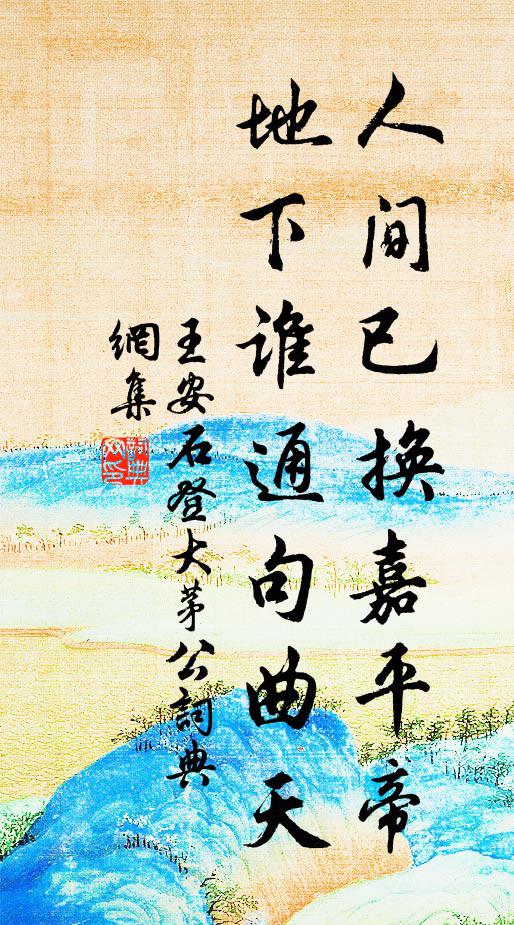 人間已換嘉平帝
地下誰通句曲天
王安石登大茅公詞典
網集